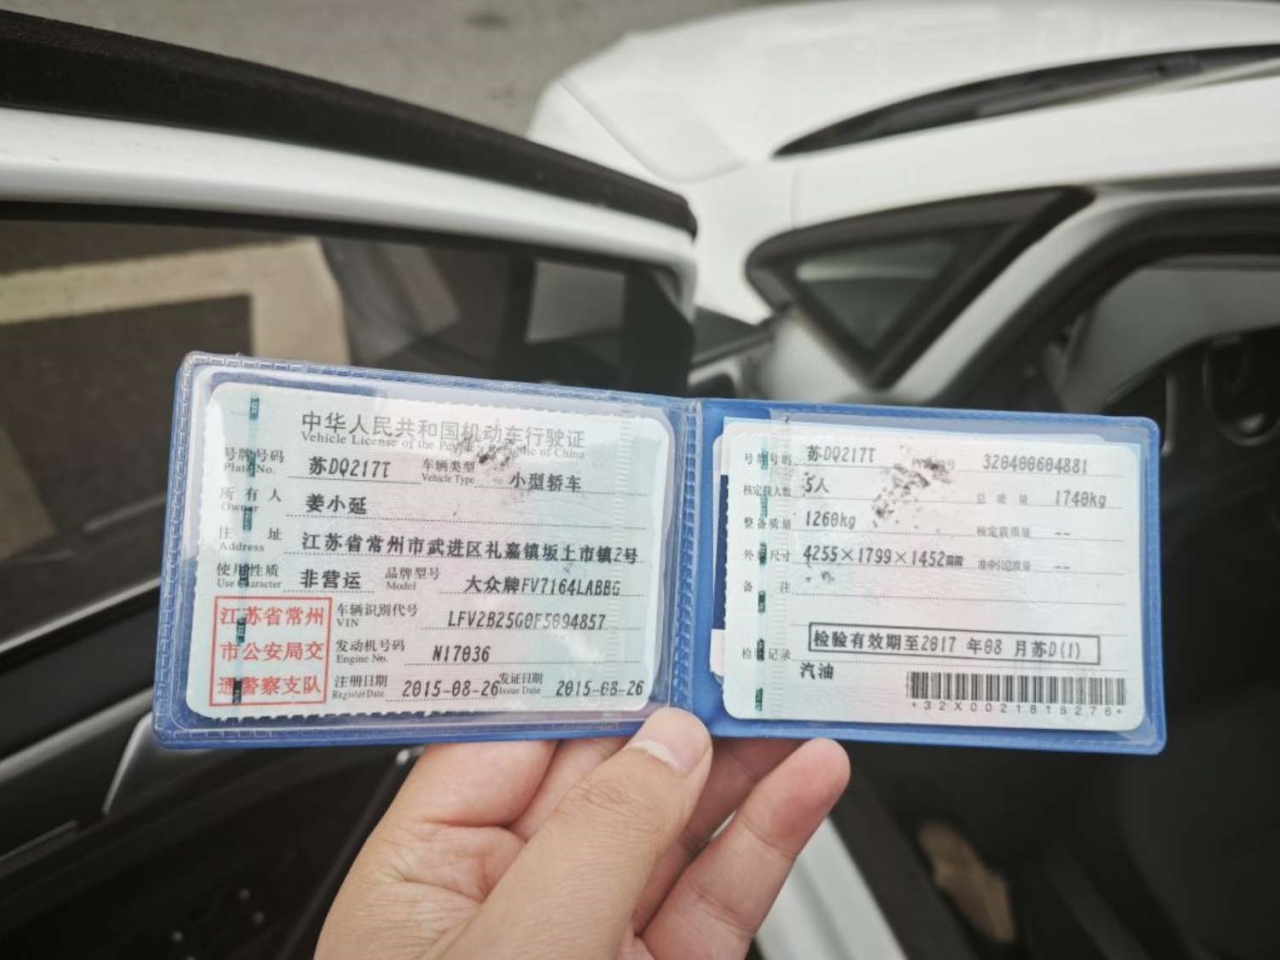 中华人民共和国机动车行驶证
Vehicle License of the People's Republic of China
号牌号码 苏DQ217T 车辆类型 小型轿车
Plate No. Vehicle Type
所有人 姜小延
Owner
住址 江苏省常州市武进区礼嘉镇坂上市镇2号
Address
使用性质 非营运 品牌型号 大众牌FV7164LABBG
Use Character Model
江苏省常州市公安局交通警察支队
车辆识别代号 LFV2B25G0F5094857
VIN
发动机号码 N17036
Engine No.
注册日期 2015-08-26 发证日期 2015-08-26
Register Date Issue Date
号牌号码 苏DQ217T 320400604881
核定载人数 5人 总质量 1740kg
整备质量 1260kg 核定载质量 --
外 尺寸 4255×1799×1452 准牵引总质量 --
备注
检验有效期至2017 年08 月苏D(1)
检 记录
汽油
*32X0021818276*